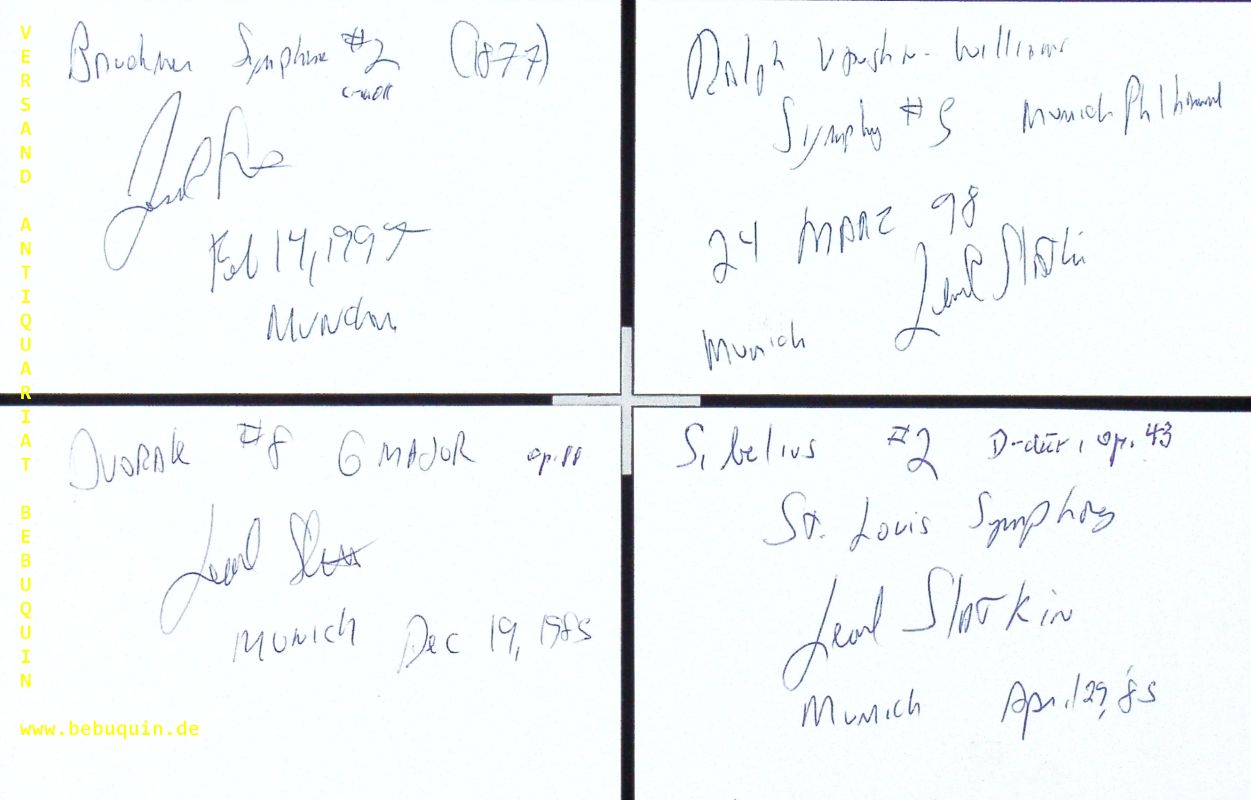 Bruckner Symphonie #2 (1877)
c-moll
Feb 14, 1997
München
Ralph Vaughn-Williams
Symphy #5 Munich Philharm
24 MÄRZ 98
Leonard Slatkin
Munich
DVORAK #8 G MAJOR op. 88
Leonard
Munich Dec 19, 1985
Sibelius #2 D-dur, op. 43
St. Louis Symphony
Leonard Slatkin
Munich April 29, '85
VERSAND ANTIQUARIAT BEBUQUIN
www.bebuquin.de